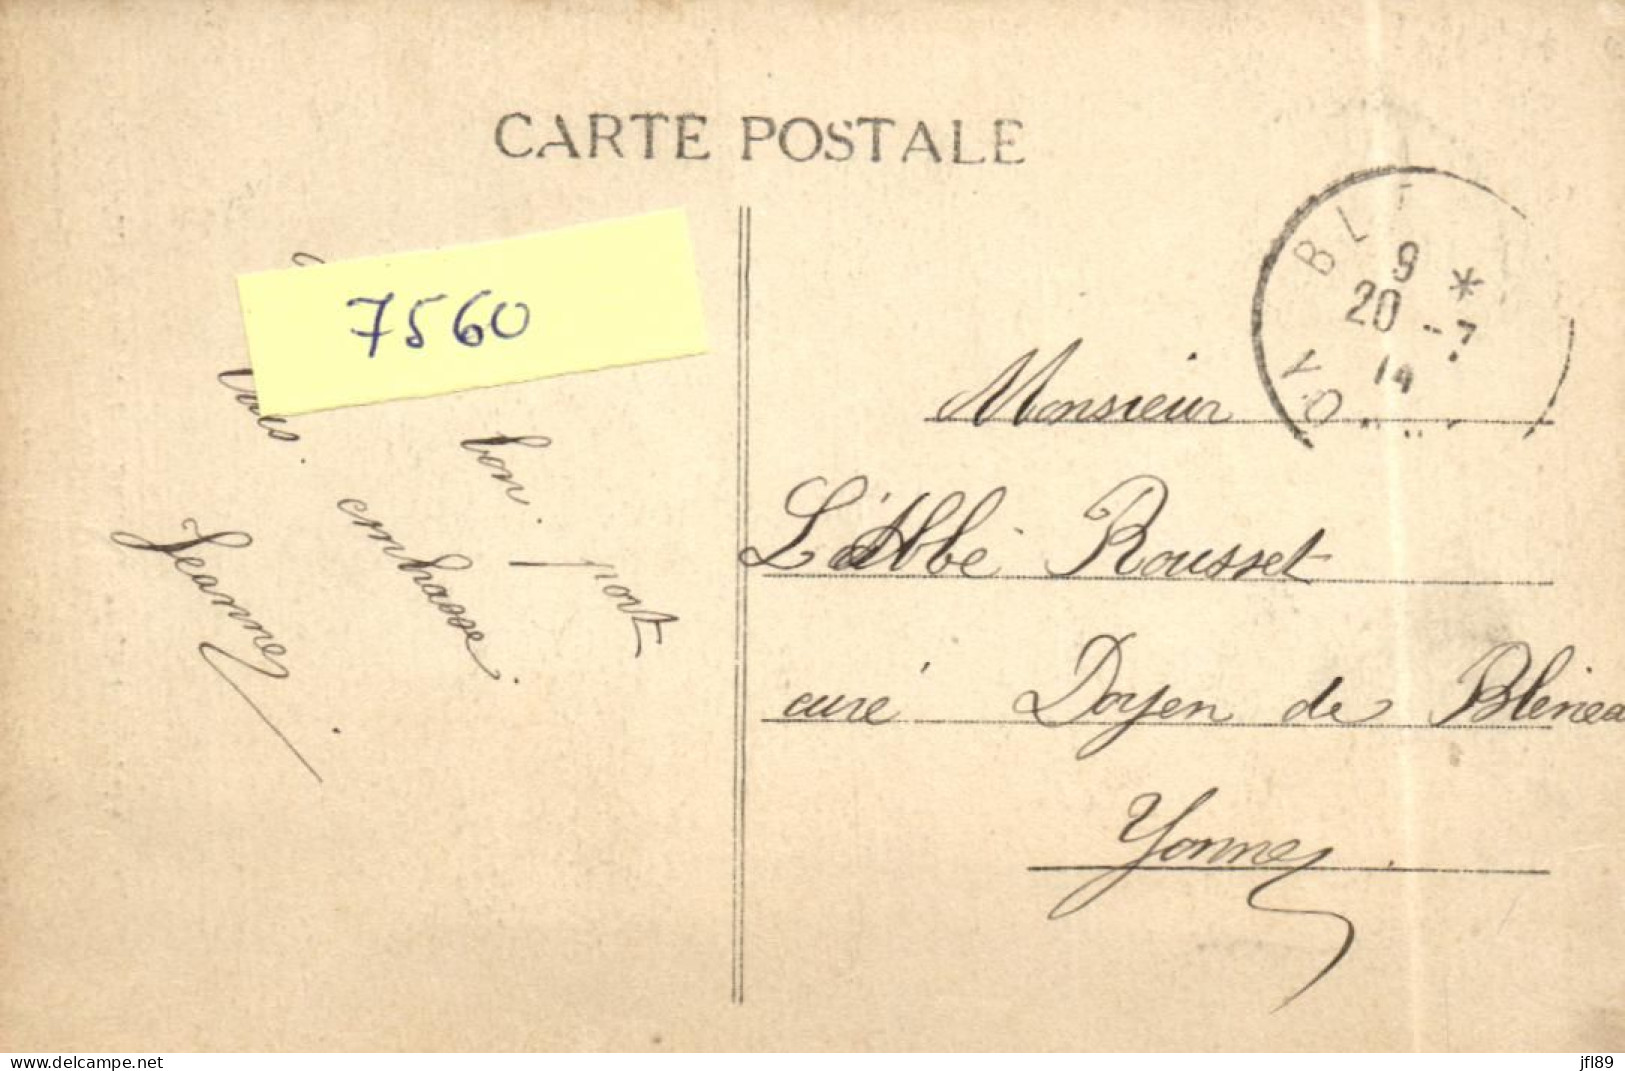 CARTE POSTALE
7560
bon port
vous embrasse.
Jeanne
BLE
9 *
20 -7
14
YO
Monsieur
L'Abbé Rousset
curé Doyen de Blénea
Yonne
www.delcampe.net
jfl89